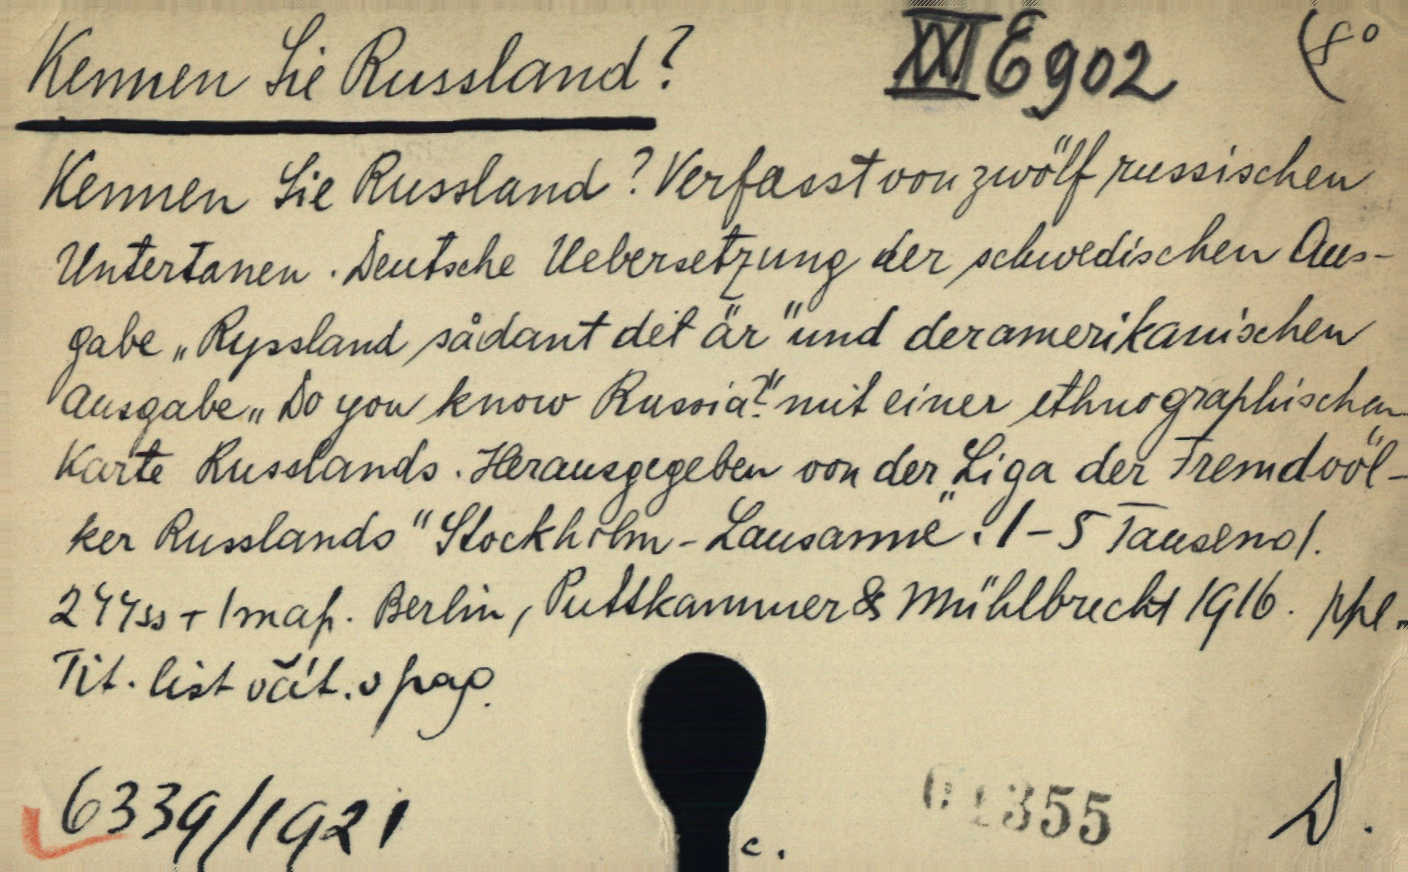 Kennen Sie Russland? XXI E 902 (8°
Kennen Sie Russland? Verfasst von zwölf russischen
Untertanen. Deutsche Uebersetzung der schwedischen Aus-
gabe „Ryssland sådant det är" und der amerikanischen
Ausgabe „Do you know Russia?" mit einer ethnographischen
Karte Russlands. Herausgegeben von der „Liga der Fremdvöl-
ker Russlands" Stockholm-Lausanne". 1-5 Tausend.
244 ss + 1 map. Berlin, Puttkammer & Mühlbrecht 1916. ppl.
Tit. list včít. v pag.
6339/1921
c. 1355 D.